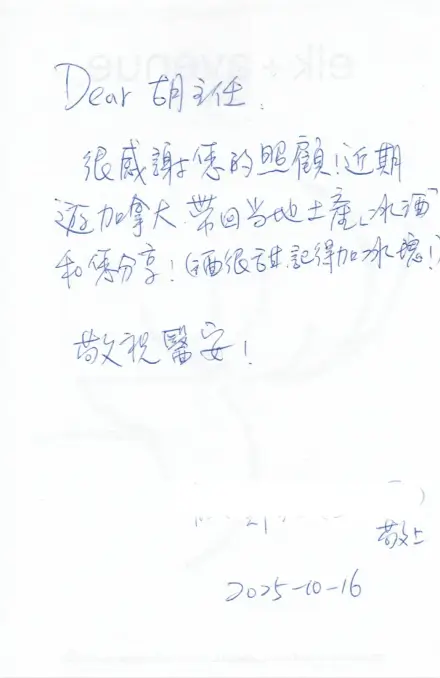 Dear 胡主任.
很感謝您的照顧!近期
遊加拿大.帶回当地土產「冰酒」
和您分享!(酒很甜記得加冰塊!)
敬祝醫安!
敬上
2025-10-16